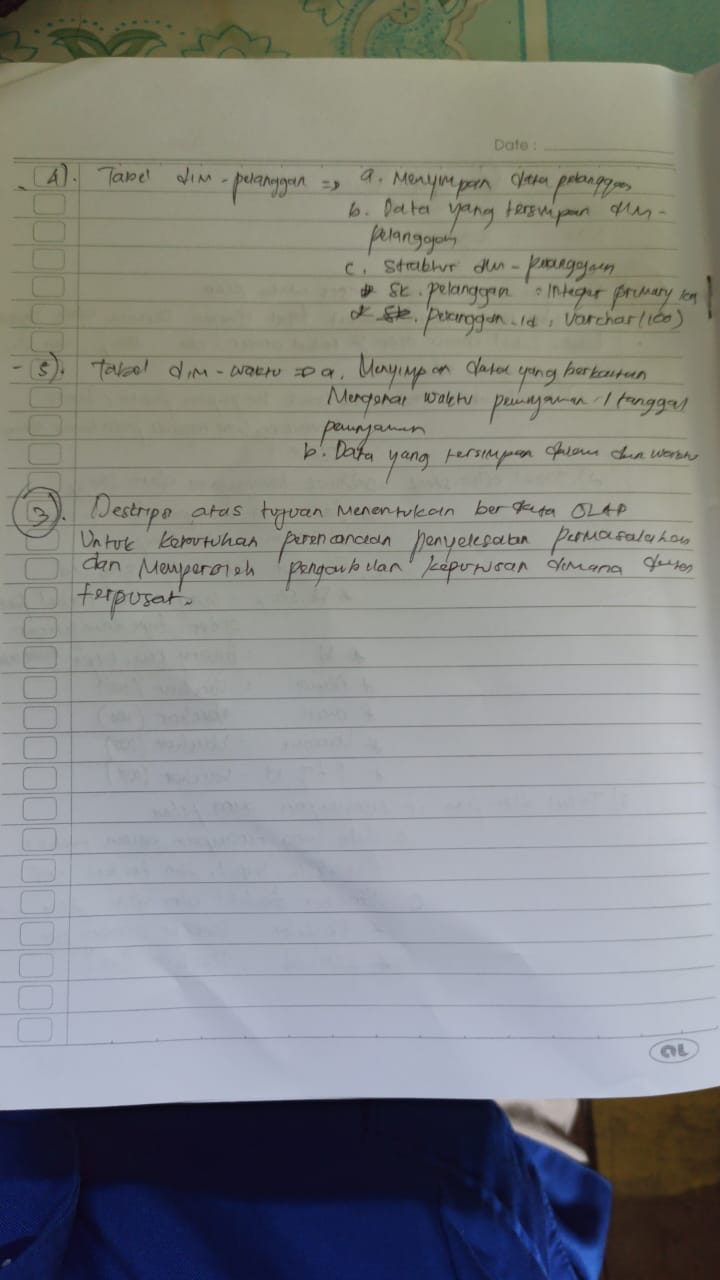 Date :
4). Tabel dim-pelanggan => a. Menyimpan data pelanggan
b. Data yang tersimpan dim-
pelanggan
c. Struktur dim-pelanggan
* sk. pelanggan : Integer primary key
* pelanggan.id, Varchar(100)
- 5). Tabel dim-waktu => a. Menyimpan data yang berkaitan
Mengenai waktu peminjaman / tanggal
peminjaman
b. Data yang tersimpan dalam dim waktu
3). Deskripsi atas tujuan menentukan ber data OLAP
Untuk keputuhan perencanaan penyelesaian permasalahan
dan Memperoleh pengambilan keputusan dimana
terpusat.